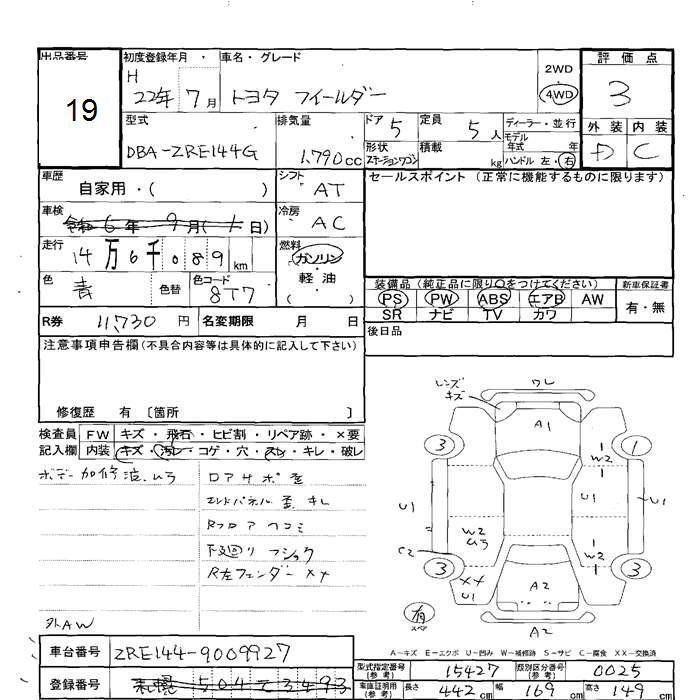 出品番号 初度登録年月 車名・グレード 2WD 評価点
19 H 22年 7月 トヨタ フィールダー 4WD 3
型式 排気量 ドア 5 定員 5人 ディーラー・並行 外装 内装
DBA-ZRE144G 1,790cc 形状 ステーションワゴン 積載 kg モデル年式 年 D C
ハンドル 左・右
車歴 自家用・( ) シフト AT セールスポイント(正常に機能するものに限ります)
車検 令和6年9月(1日) 冷房 AC
走行 14万6千089km 燃料 ガソリン・軽油( )
色 青 色替 色コード 8T7 装備品(純正品に限り○をつけてください) 新車保証書
PS PW ABS エアB AW 有・無
SR ナビ TV カワ
R券 11,730円 名変期限 月 日 後日品
注意事項申告欄(不具合内容等は具体的に記入して下さい)
修復歴 有 〔箇所 〕
検査員 FW キズ・飛石・ヒビ割・リペア跡・×要
記入欄 内装 キズ・汚レ・コゲ・穴・スレ・キレ・破レ
ボデー加修渡ムラ ロアサポ歪
エンドパネル歪 キレ
Rフロアヘコミ
下廻りフショク
R左フェンダーXX
外AW
レンズキズ ワレ
A1
3 1
W2
U1 U1 U1
W2 ムラ W2 U3
C2
3 3
XX U1 A2 U1
有 スペア A2
A-キズ E-エクボ U-凹み W-補修跡 S-サビ C-腐食 XX-交換済
車台番号 ZRE144-9009927
型式指定番号(参考) 15427 類別区分番号(参考) 0025
登録番号 札幌 504 て 3493
車庫証明用(参考) 長さ 442cm 幅 169cm 高さ 149cm